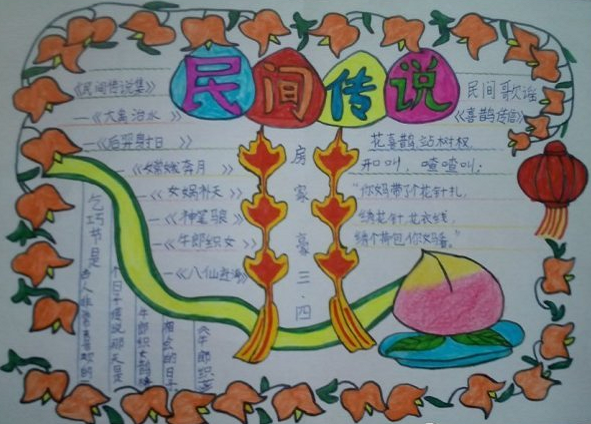 民间传说
《民间传说集》
—《大禹治水》
—《后羿射日》
—《嫦娥奔月》
—《女娲补天》
—《神笔马良》
—《牛郎织女》
—《八仙过海》
房家豪三·四
民间歌谣
《喜鹊传信》
花喜鹊,站树杈,
开口叫,喳喳叫;
"你妈带了个花针扎,
绣花针,花衣线,
绣个荷包你女婿。"
乞巧节是
古人非常喜欢的
个日子传说那天是
牛郎织女鹊
相会的日子